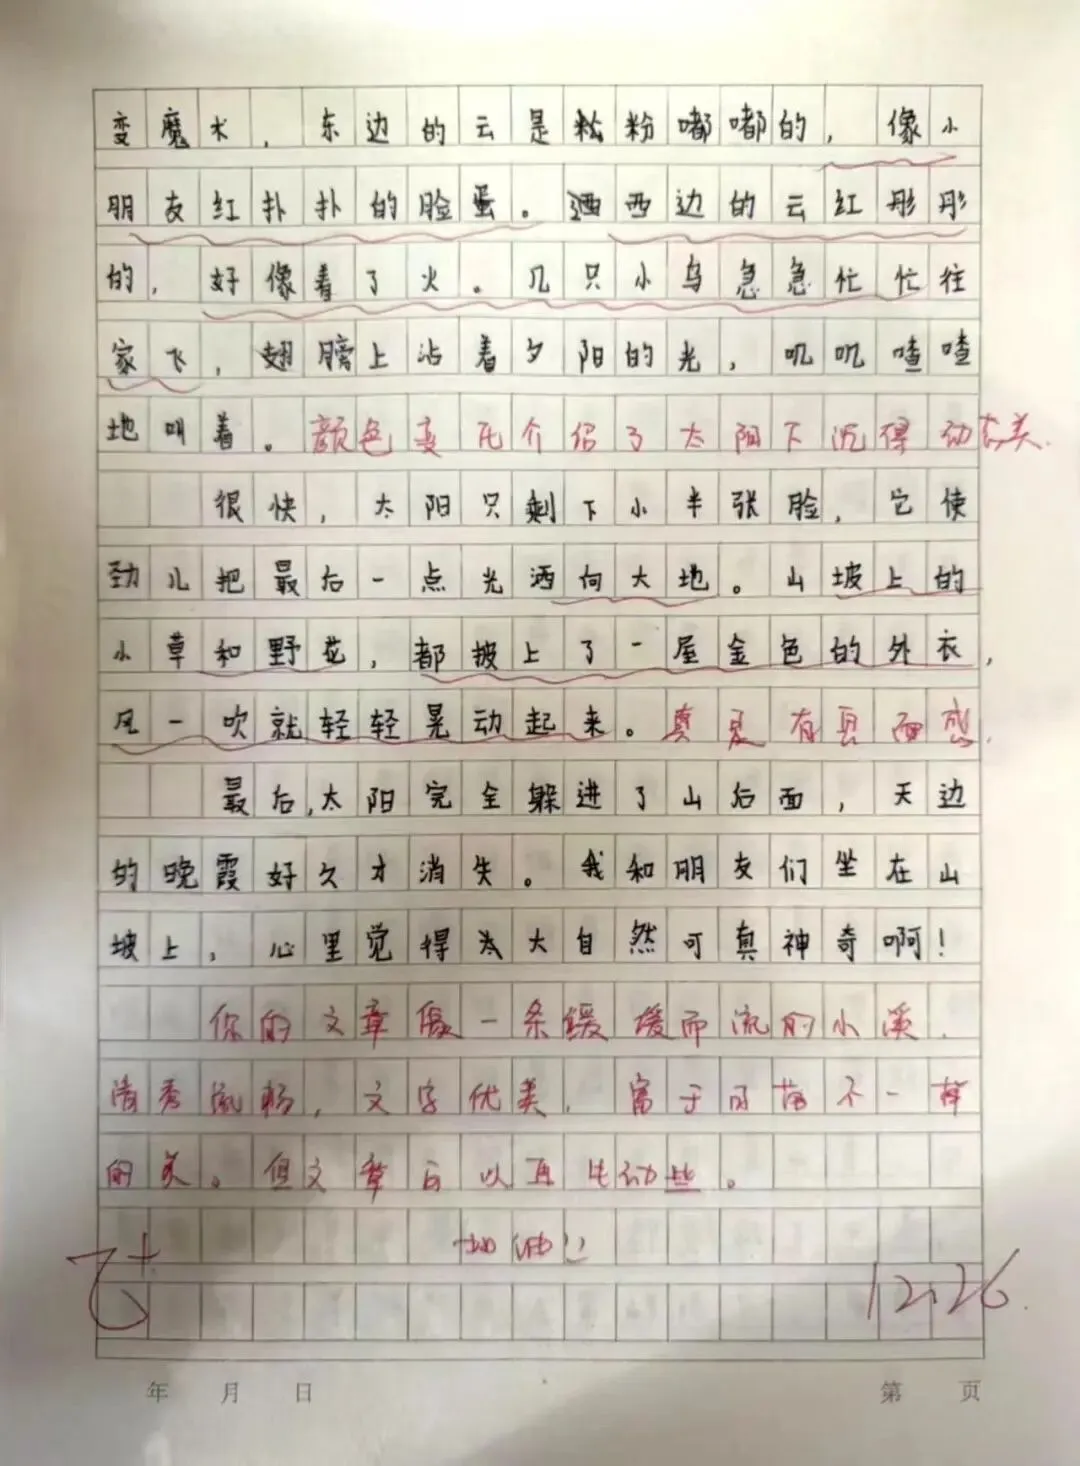 变魔术，东边的云是粉粉嘟嘟的，像小
朋友红扑扑的脸蛋。西边的云红彤彤
的，好像着了火。几只小鸟急急忙忙往
家飞，翅膀上沾着夕阳的光，叽叽喳喳
地叫着。颜色变化介绍了太阳下沉得动态美.
很快，太阳只剩下小半张脸，它使
劲儿把最后一点光洒向大地。山坡上的
小草和野花，都披上了一层金色的外衣，
风一吹就轻轻晃动起来。真是有画面感.
最后，太阳完全躲进了山后面，天边
的晚霞好久才消失。我和朋友们坐在山
坡上，心里觉得大自然可真神奇啊！
你的文章像一条缓缓而流的小溪.
清秀流畅，文字优美，富于
的美。但文章可以再生动些。
加油
12.26
年 月 日
第 页